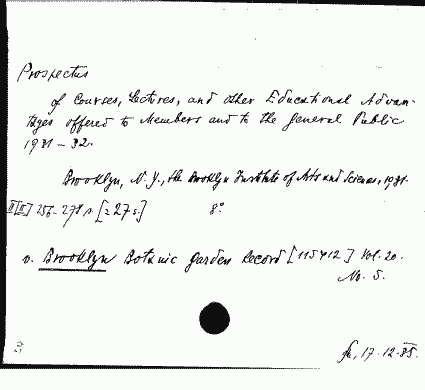 Prospectus
of Courses, Lectures, and other Educational Advan-
tages offered to Members and to the General Public
1931-32.
Brooklyn, N.Y., the Brooklyn Institute of Arts and Sciences, 1931.
256-278 p. [=27 s.] 8°
v. Brooklyn Botanic Garden Record [115412] Vol. 20.
No. 5.
17.12.85.